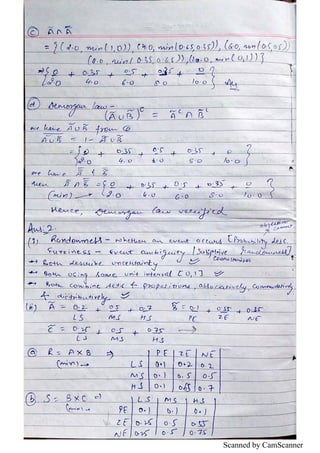 (c) Ā ∩ B̄
= {(2.0, min(1,0)), (4.0, min(0.65,0.35)), (6.0, min(0.5,0.5))
(8.0, min(0.35,0.65)), (10.0, min(0,1))}
⇒ { 0/2.0 + 0.35/4.0 + 0.5/6.0 + 0.35/8.0 + 0/10.0 } Ans
(d) Demorgan law -
(A ∪ B)ᶜ = Ā ∩ B̄
we have A ∪ B from
A ∪ B = 1 - A ∪ B
= { 0/2.0 + 0.35/4.0 + 0.5/6.0 + 0.35/8.0 + 0/10.0 }
we have Ā & B̄
then Ā ∩ B̄ = { 0/2.0 + 0.35/4.0 + 0.5/6.0 + 0.35/8.0 + 0/10.0 }
(min) →
Hence, Demorgan law verified
Ans: 2
(i) Randomness - whether an event occurs [Probability
Fuzziness - event ambiguity
→ Both describe uncertainty
→ Both using same unit interval [0,1]
→ Both combine sets & propositions, associatively, commutatively
& distributively.
(ii) A = 0.2/LS + 0.5/MS + 0.7/HS B = 0.1/PE + 0.55/ZE +
C = 0.25/LS + 0.5/MS + 0.75/HS
(a) R = A × B ⇒ PE ZE NE
(min) → LS 0.1 0.2 0.2
MS 0.1 0.5 0.5
HS 0.1 0.55 0.7
(b) S = B × C ⇒ LS MS HS
(min) → PE 0.1 0.1 0.1
ZE 0.25 0.5 0.55
NE 0.25 0.5 0.75
Scanned by CamScanner